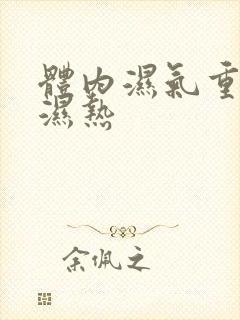 體內濕氣重
濕熱
余佩之